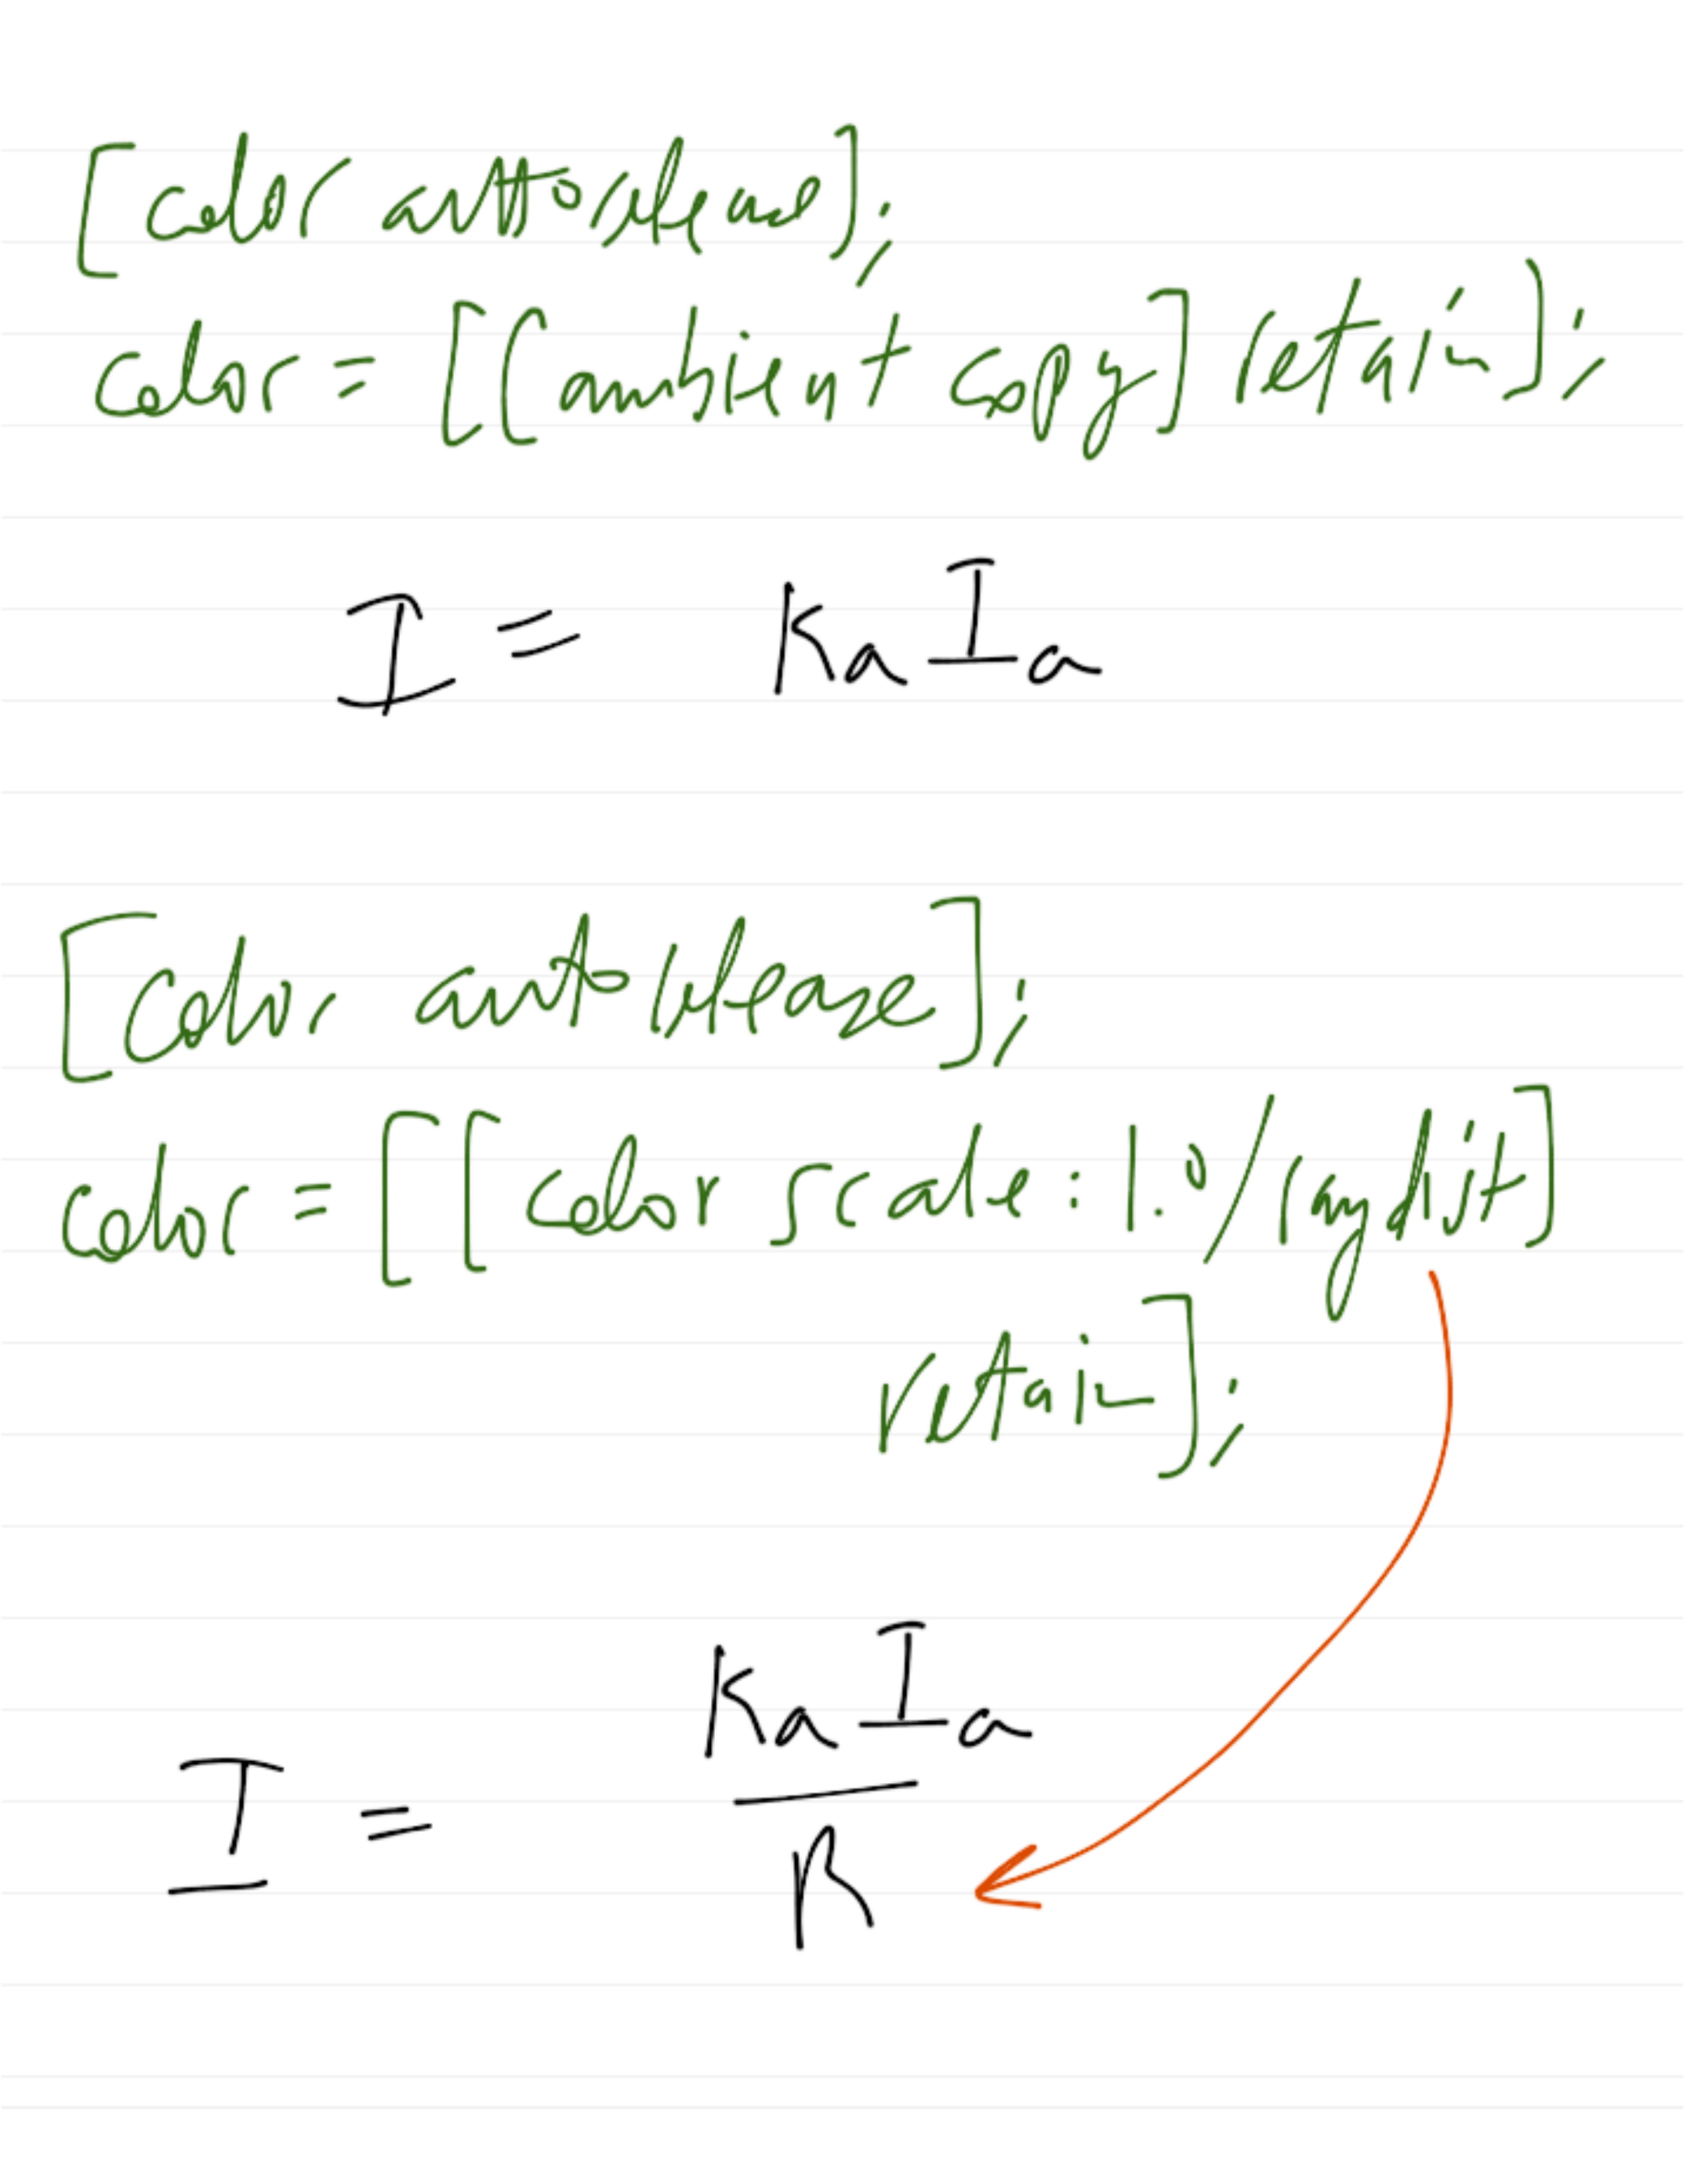 [color autorelease];
color = [[ambient copy] retain];
I = KaIa
[color autorelease];
color = [[color scale: 1.0/raydist]
retain];
KaIa
I = ―
R